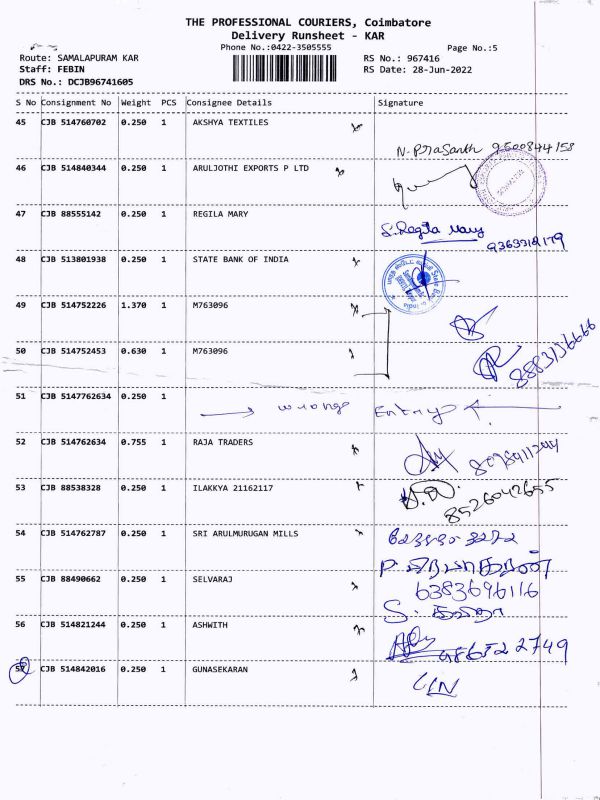 THE PROFESSIONAL COURIERS, Coimbatore
Delivery Runsheet - KAR
Phone No.:0422-3505555
Page No.:5
Route: SAMALAPURAM KAR
RS No.: 967416
Staff: FEBIN
RS Date: 28-Jun-2022
DRS No.: DCJB96741605
S No Consignment No Weight PCS Consignee Details Signature
45 CJB 514760702 0.250 1 AKSHYA TEXTILES
N. Prasanth 9500844158
46 CJB 514840344 0.250 1 ARULJOTHI EXPORTS P LTD
47 CJB 88555142 0.250 1 REGILA MARY
S. Regila Mary
48 CJB 513801938 0.250 1 STATE BANK OF INDIA
49 CJB 514752226 1.370 1 M763096
50 CJB 514752453 0.630 1 M763096
51 CJB 5147762634 0.250 1
wronge Entry
52 CJB 514762634 0.755 1 RAJA TRADERS
53 CJB 88538328 0.250 1 ILAKKYA 21162117
8526042655
54 CJB 514762787 0.250 1 SRI ARULMURUGAN MILLS
55 CJB 88490662 0.250 1 SELVARAJ
6383696116
56 CJB 514821244 0.250 1 ASHWITH
57 CJB 514842016 0.250 1 GUNASEKARAN